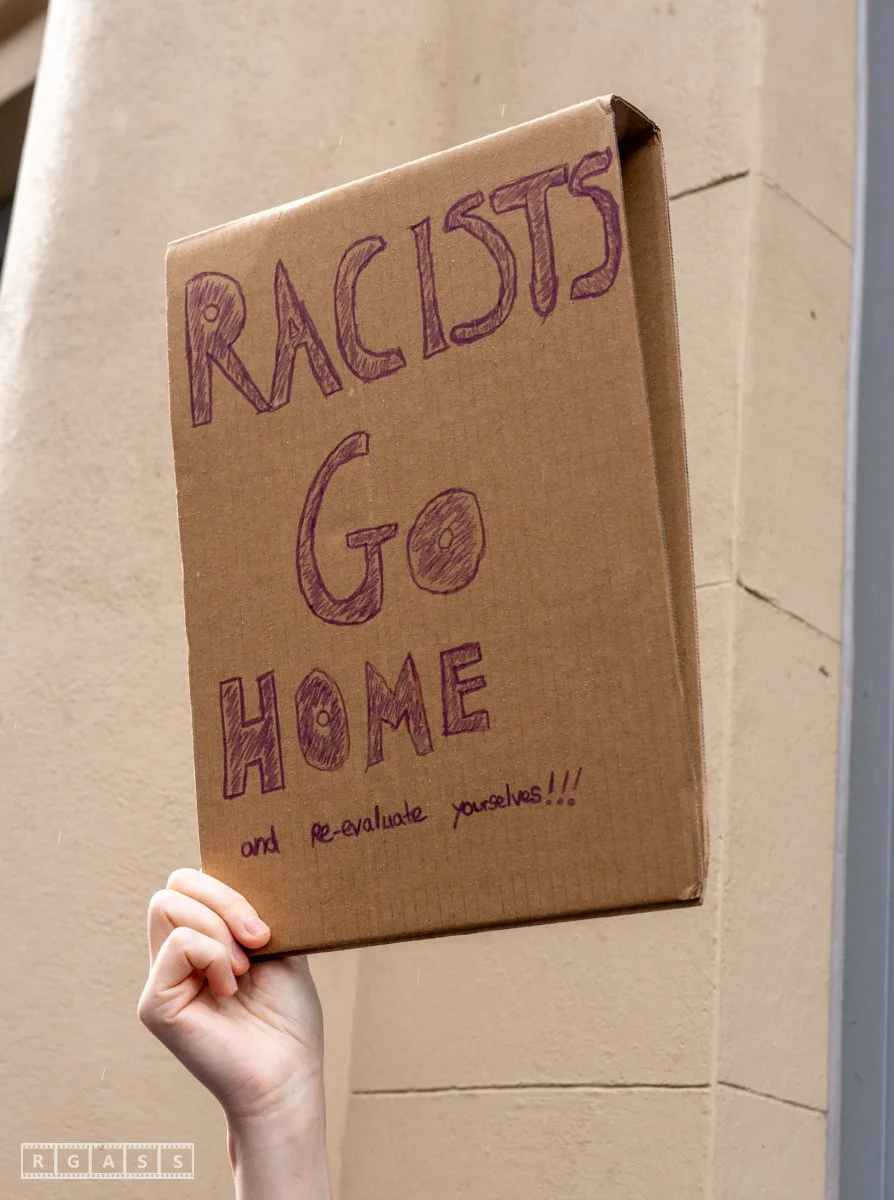 RACISTS
GO
HOME
and re-evaluate yourselves!!!
RGASS